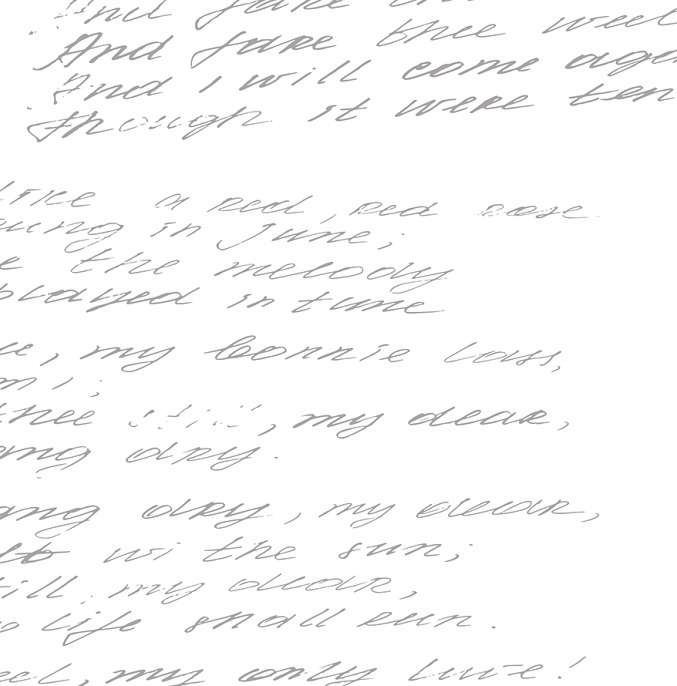 And fare thee weel
And fare thee weel
And I will come aga
Though it were ten
like a red, red rose
ung in June;
e the melody
played in tune
e, my bonnie lass,
m I;
thee still, my dear,
ang dry.
ang dry, my dear,
lt wi the sun;
till my dear,
o life shall run.
eel, my only luve!